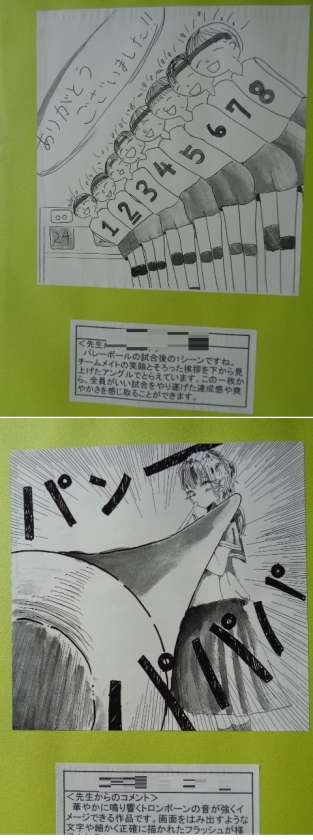 ありがとう
ございました!!
1 2 3 4 5 6 7 8
24
<先生
バレーボールの試合後の1シーンですね。
チームメイトの笑顔とそろった挨拶を下から見
上げたアングルでとらえています。この一枚か
ら、全員がいい試合をやり遂げた達成感や爽
やかさを感じ取ることができます。
パンー
パパパパ
<先生からのコメント>
華やかに鳴り響くトロンボーンの音が強くイ
メージできる作品です。画面をはみ出すような
文字や細かく正確に描かれたフラッシュが様